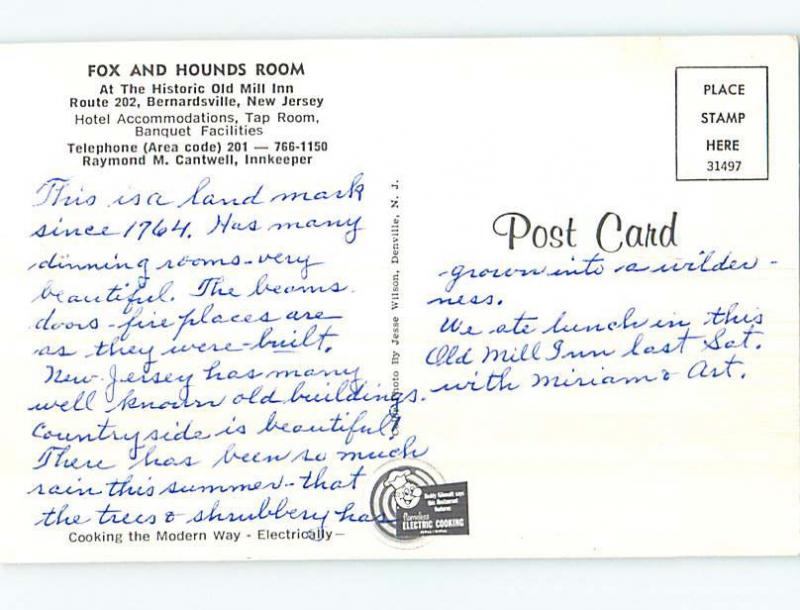 FOX AND HOUNDS ROOM
At The Historic Old Mill Inn
Route 202, Bernardsville, New Jersey
Hotel Accommodations, Tap Room,
Banquet Facilities
Telephone (Area code) 201 — 766-1150
Raymond M. Cantwell, Innkeeper
This is a land mark
since 1764. Has many
dinning rooms-very
beautiful. The beams.
doors-fire places are
as they were-built.
New-Jersey has many
well known old buildings.
Countryside is beautiful!
There has been so much
rain this summer-that
the trees & shrubbery has
Cooking the Modern Way - Electrically—
Photo By Jesse Wilson, Denville, N. J.
PLACE
STAMP
HERE
31497
Post Card
grown into a wilder-
ness.
We ate lunch in this
Old Mill Inn last Sat.
with Miriam & Art.
Reddy Kilowatt says
this Restaurant
features
Flameless
ELECTRIC COOKING